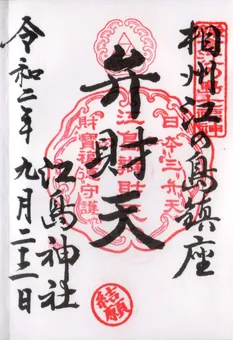 相州江の島鎮座
弁財天
江島神社
令和二年九月二十二日
日本三弁天
江島辯財天
財寶福徳守護
結願